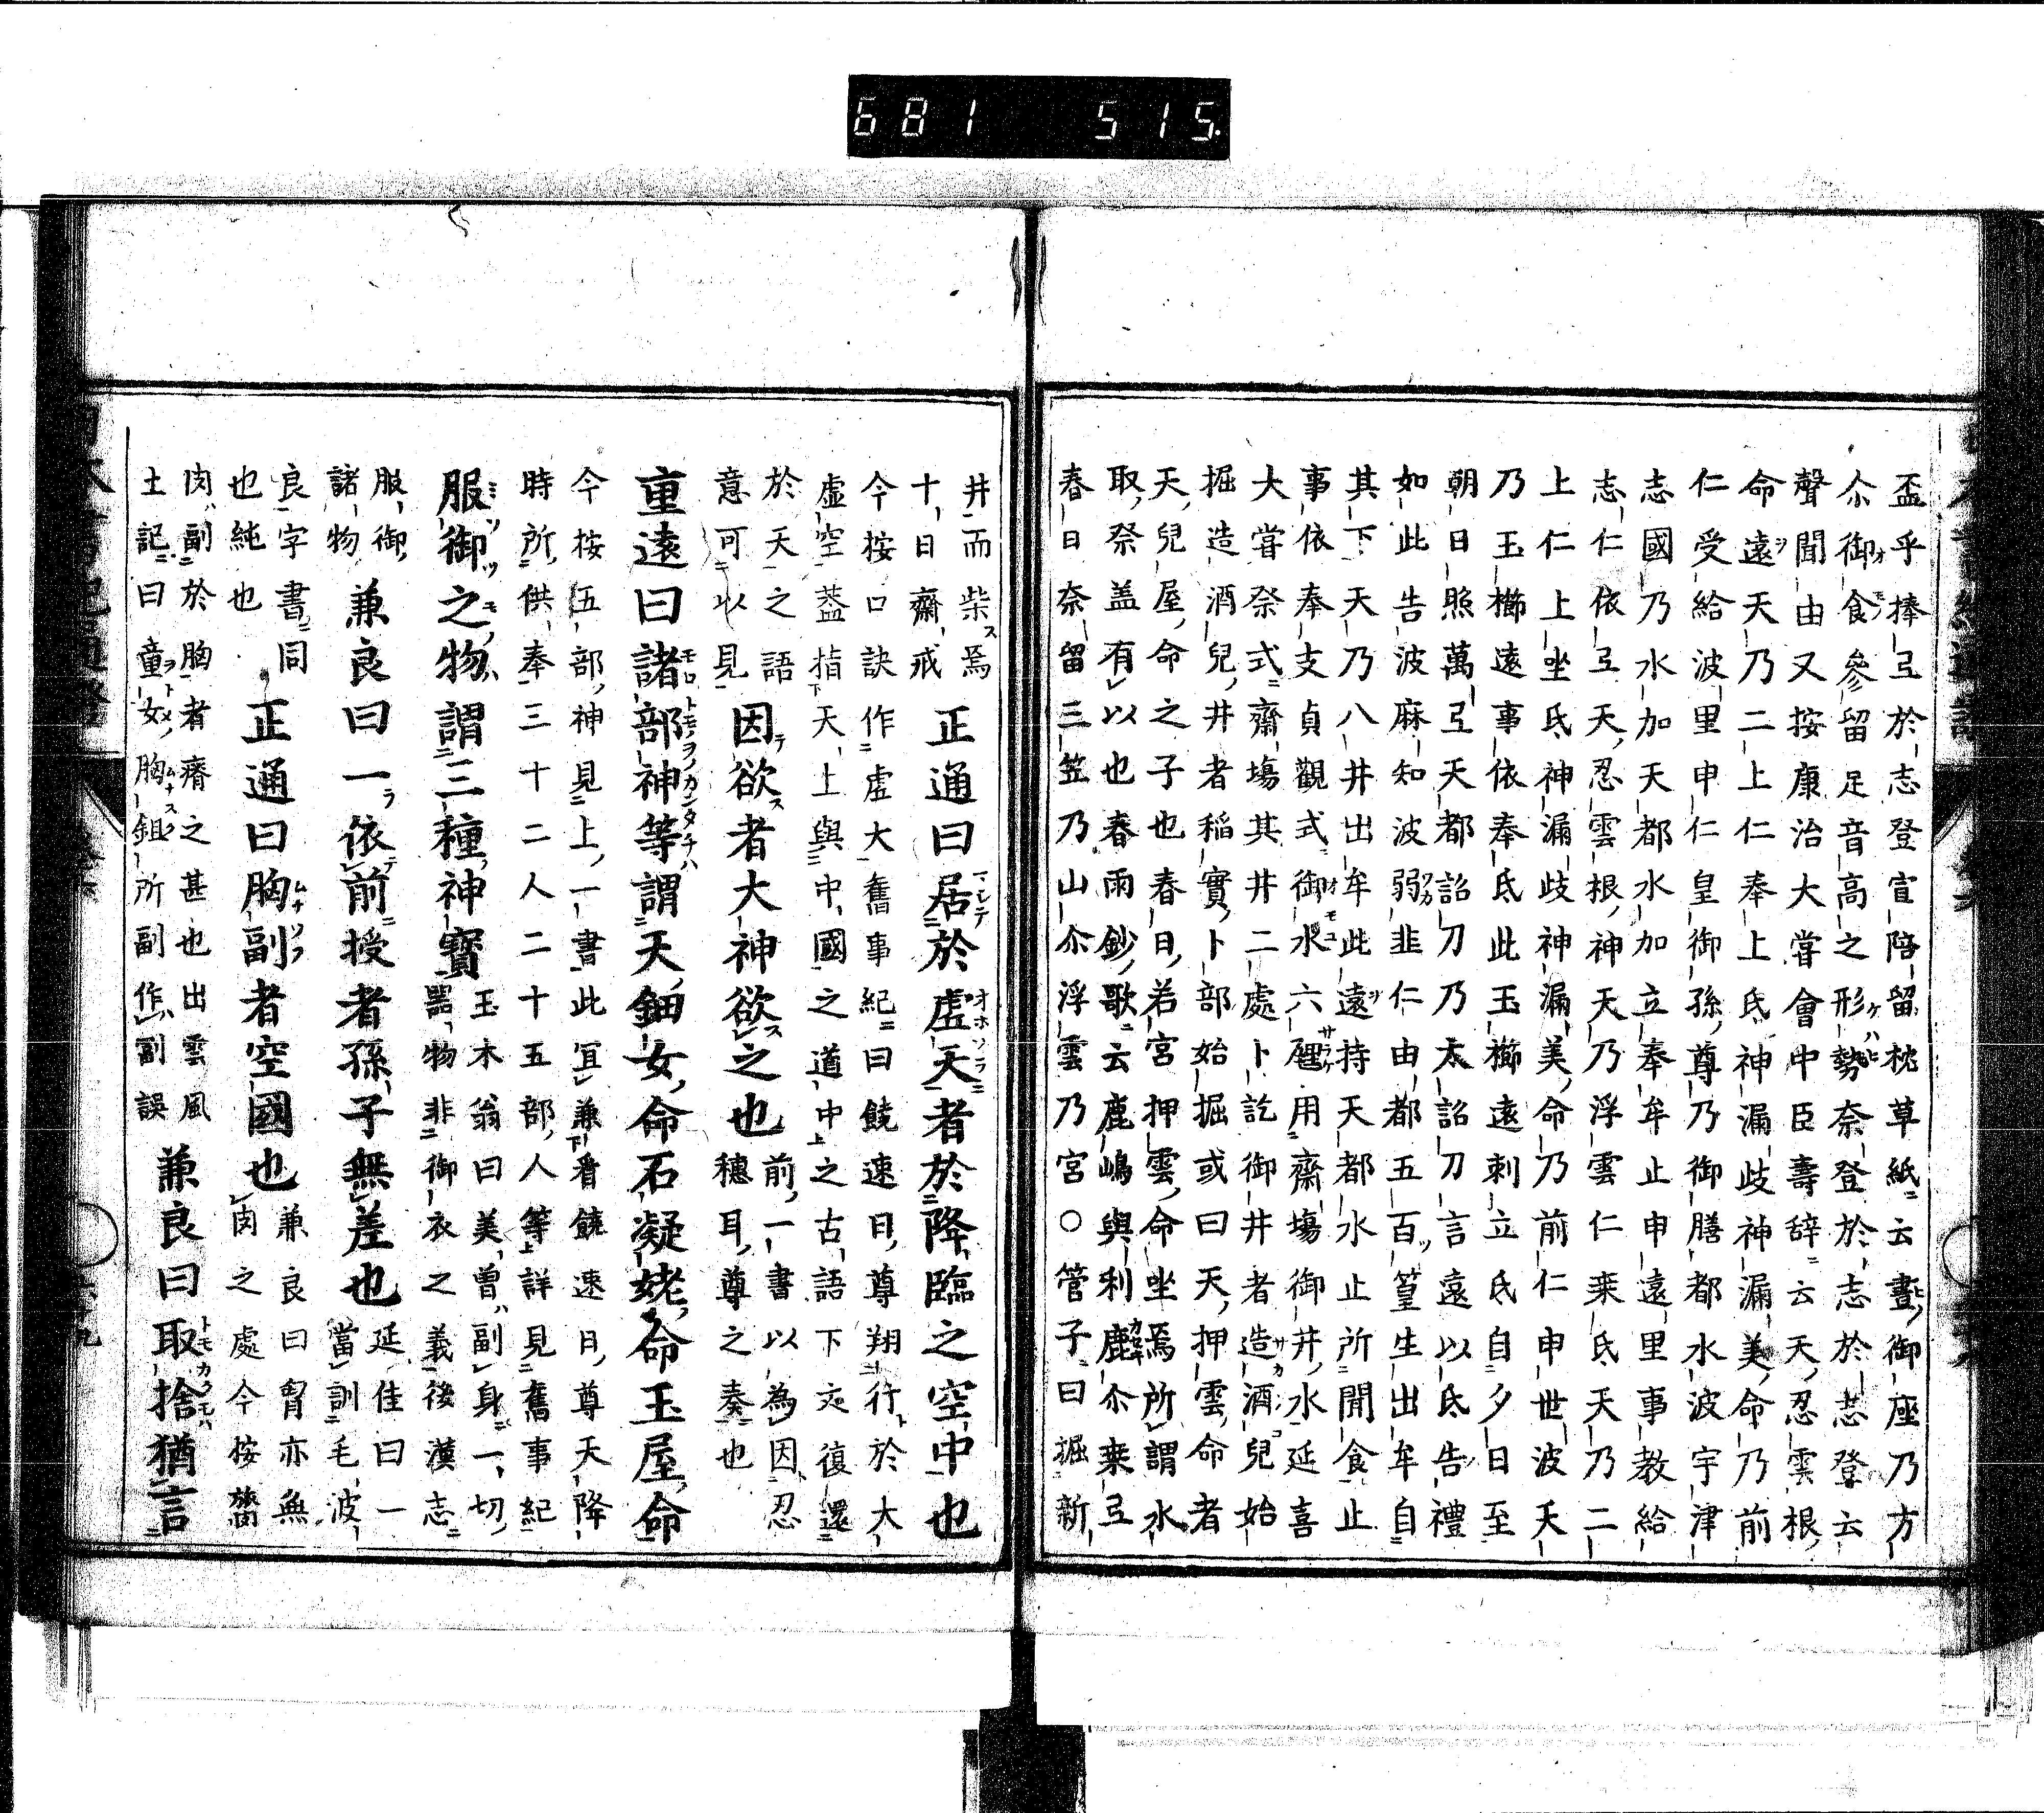 681 515.
盃乎捧弖於志登宣陪留枕草紙云晝御座乃方
尒御食參留足音高之形勢奈登於志於志登云
聲聞由又按康治大嘗會中臣壽辞云天忍雲根
命遠天乃二上仁奉上氐神漏岐神漏美命乃前
仁受給波里申仁皇御孫尊乃御膳都水波宇津
志國乃水加天都水加立奉牟止申遠里事教給
志仁依弖天忍雲根神天乃浮雲仁乗氐天乃二
上仁上坐氐神漏岐神漏美命乃前仁申世波天
乃玉櫛遠事依奉氐此玉櫛遠刺立氐自夕日至
朝日照萬弖天都詔刀乃太詔刀言遠以氐告禮
如此告波麻知波弱韭仁由都五百篁生出牟自
其下天乃八井出牟此遠持天都水止所聞食止
事依奉支貞觀式御水六𤭖用齋塲御井水延喜
大嘗祭式齋塲其井二處卜訖御井者造酒兒始
掘造酒兒井者稻實卜部始掘或曰天押雲命者
天兒屋命之子也春日若宮押雲命坐焉所謂水
取祭盖有以也春雨鈔歌云鹿嶋與利鹿尒乗弖
春日奈留三笠乃山尒浮雲乃宮○管子曰掘新
井而柴焉
十日齋戒
正通曰居於虛天者於降臨之空中也
今按口訣作虛大舊事紀曰饒速日尊翔行於大
虛空葢指天上與中國之道中之古語下文復還
於天之語
意可以見
因欲者大神欲之也
前一書以為因忍
穗耳尊之奏也
重遠曰諸部神等謂天鈿女命石凝姥命玉屋命
今按五部神見上一書此冝兼看饒速日尊天降
時所供奉三十二人二十五部人等詳見舊事紀
服御之物謂三種神寶
玉木翁曰美曾副身一切
噐物非御衣之義後漢志
服御
諸物
兼良曰一依前授者孫子無差也
延佳曰一
當訓毛波
良字書同
也純也
正通曰胸副者空國也
兼良曰膂亦無
肉之處今按膂
肉副於胸者瘠之甚也出雲風
土記曰童女胸鉏所副作副誤
兼良曰取捨猶言